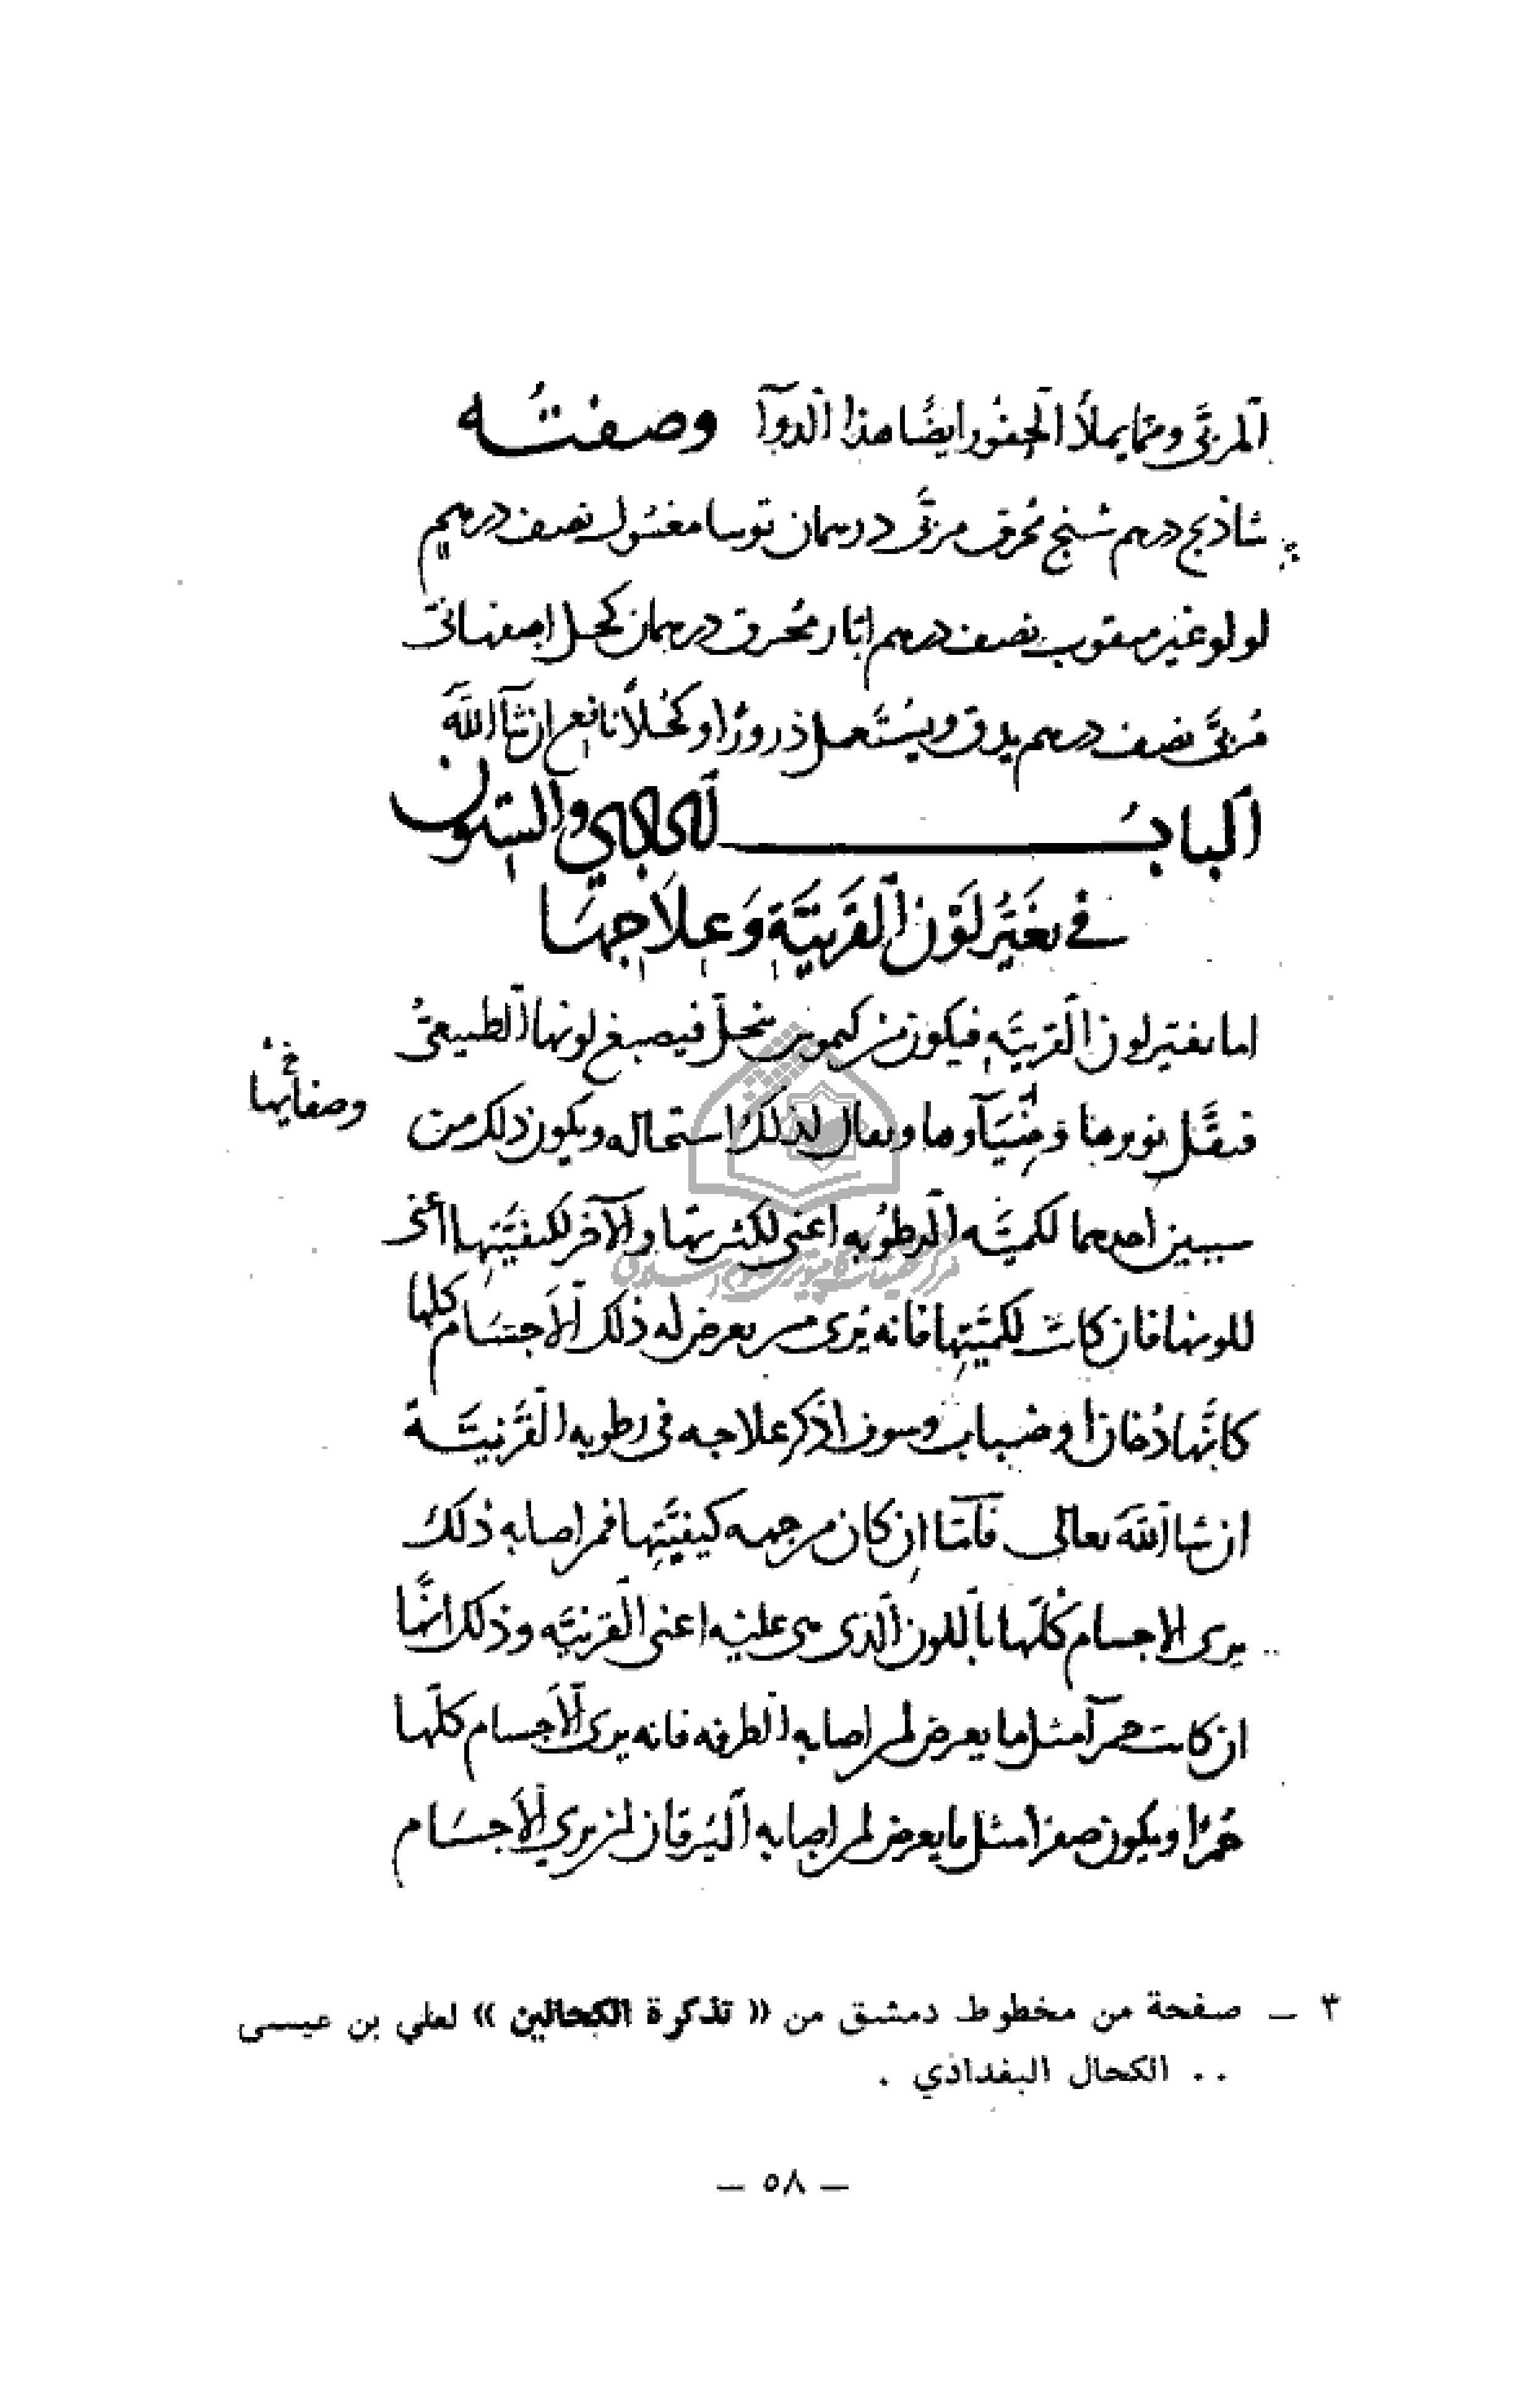 المربَّى ومما يملأ الحفور ايضًا هذا الدوآ وصفتُه
شاذنج درهم شنج مُحرق مربَّى درهمان توتيا مغسُول نصف درهمٍ
لولو غير مثقوب نصف درهم ابار مُحرق درهمان كحل اصفهانى
مُربَّى نصف درهم يدق ويُستَعمل ذرورًا وكُحلًا نافع ان شآ الله
البابُ الحادي والستون
في تغيُّر لَوْن القَرنيَّةِ وَعِلاجِهَا
اما تغير لون القرنيَّهِ فيكون من كيموس ينحلّ فيصبغ لونها الطبيعىُّ
وصفايها
فيقل نورها وضيآوها ويقال لذلك استحاله ويكون ذلك من
سببين احدهما لكميَّه الرطوُبه اعنى لكثرتها والآخر لكيفيَّتِها أعنى
للونها فان كانت لكميَّتِها فانه يُرى من يعرض له ذلك الاجسَام كلها
كانَّها دُخان او ضباب وسوف اذكر علاجه فى رطوبه القَرنيَّة
ان شا اللهَ تعالى فأمّا اِن كان من جهه كيفيَّتِها فمن اصابه ذلك
يرى الاجسام كُلَّها باللون الذى هى عليه اعنى القرنيَّه وذلك انَّها
ان كانت حمرآ مثل ما يعرض لمن اصابه الطرفه فانه يرى الأجسام كلَّها
حُمرًا ويكون صفرا مثل ما يعرض لمن اصابه اليَرقان لمن يري الأجسَام
٣ – صفحة من مخطوط دمشق من « تذكرة الكحالين » لعلي بن عيسى
.. الكحال البغدادي .
– ٥٨ –